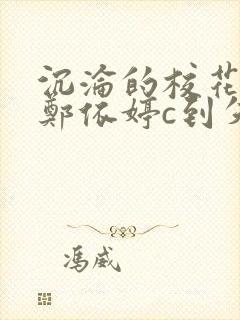 沉淪的校花
鄭依婷c到
馮威